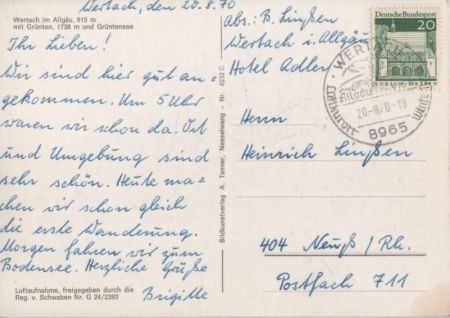 Wertach, den 20.8.70
Wertach im Allgäu, 915 m
mit Grünten, 1738 m und Grüntensee
Ihr Lieben!
Wir sind hier gut an-
gekommen. Um 5 Uhr
waren wir schon da. Ort
und Umgebung sind
sehr schön. Heute ma-
chen wir schon gleich
die erste Wanderung.
Morgen fahren wir zum
Bodensee. Herzliche Grüße
Brigitte
Luftaufnahme, freigegeben durch die
Reg. v. Schwaben Nr. G 24/2393
Bildkunstverlag A. Tanner, Nesselwang · Nr. 4233 C
Abs.: B. Linßen
Wertach i. Allgäu
Hotel Adler
Deutsche Bundespost
20
WERTACH
Allgäu
20.-8.70-18
Luftkurort
8965
Herrn
Heinrich Linßen
404 Neuß/Rh.
Postfach 711